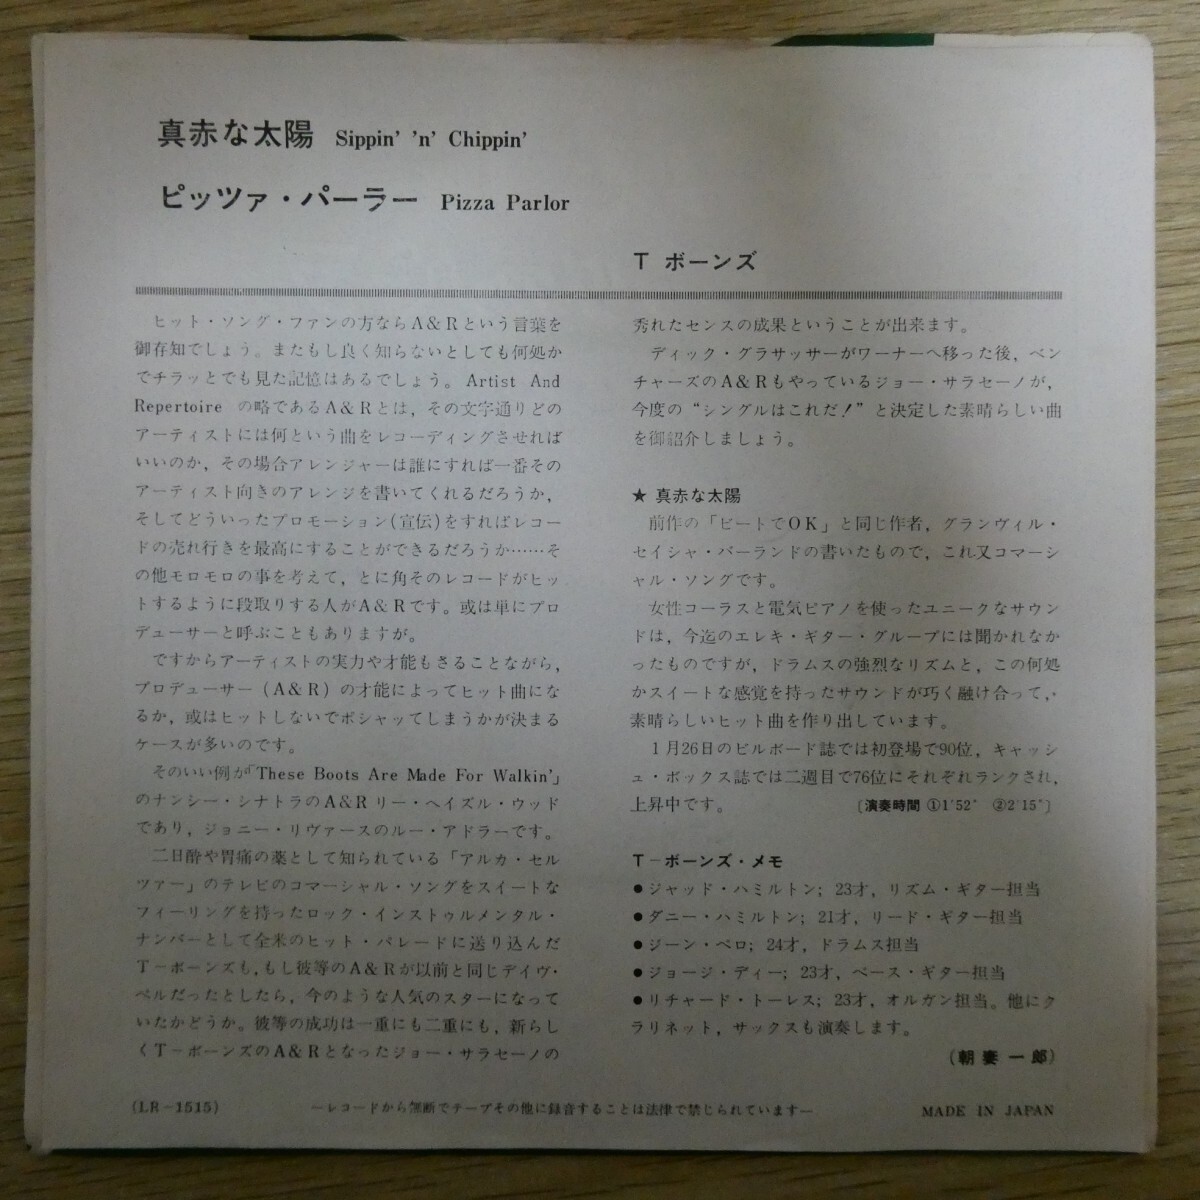 真赤な太陽 Sippin' 'n' Chippin'
ピッツァ・パーラー Pizza Parlor
T ボーンズ
ヒット・ソング・ファンの方ならA＆Rという言葉を
御存知でしょう。またもし良く知らないとしても何処か
でチラッとでも見た記憶はあるでしょう。Artist And
Repertoire の略であるA＆Rとは，その文字通りどの
アーティストには何という曲をレコーディングさせれば
いいのか，その場合アレンジャーは誰にすれば一番その
アーティスト向きのアレンジを書いてくれるだろうか，
そしてどういったプロモーション(宣伝)をすればレコー
ドの売れ行きを最高にすることができるだろうか……そ
の他モロモロの事を考えて，とに角そのレコードがヒッ
トするように段取りする人がA＆Rです。或は単にプロ
デューサーと呼ぶこともありますが。
ですからアーティストの実力や才能もさることながら，
プロデューサー（A＆R）の才能によってヒット曲にな
るか，或はヒットしないでポシャッてしまうかが決まる
ケースが多いのです。
そのいい例が「These Boots Are Made For Walkin'」
のナンシー・シナトラのA＆R リー・ヘイズル・ウッド
であり，ジョニー・リヴァースのルー・アドラーです。
二日酔や胃痛の薬として知られている「アルカ・セル
ツァー」のテレビのコマーシャル・ソングをスイートな
フィーリングを持ったロック・インストゥルメンタル・
ナンバーとして全米のヒット・パレードに送り込んだ
T－ボーンズも，もし彼等のA＆Rが以前と同じデイヴ・
ペルだったとしたら，今のような人気のスターになって
いたかどうか。彼等の成功は一重にも二重にも，新らし
くT－ボーンズのA＆Rとなったジョー・サラセーノの
秀れたセンスの成果ということが出来ます。
ディック・グラサッサーがワーナーへ移った後，ベン
チャーズのA＆Rもやっているジョー・サラセーノが，
今度の“シングルはこれだ！”と決定した素晴らしい曲
を御紹介しましょう。
★ 真赤な太陽
前作の「ビートでOK」と同じ作者，グランヴィル・
セイシャ・バーランドの書いたもので，これ又コマーシ
ャル・ソングです。
女性コーラスと電気ピアノを使ったユニークなサウン
ドは，今迄のエレキ・ギター・グループには聞かれなか
ったものですが，ドラムスの強烈なリズムと，この何処
かスイートな感覚を持ったサウンドが巧く融け合って，
素晴らしいヒット曲を作り出しています。
1月26日のビルボード誌では初登場で90位，キャッシ
ュ・ボックス誌では二週目で76位にそれぞれランクされ，
上昇中です。 〔演奏時間 ①1′52″ ②2′15″〕
T－ボーンズ・メモ
●ジャッド・ハミルトン；23才，リズム・ギター担当
●ダニー・ハミルトン；21才，リード・ギター担当
●ジーン・ペロ；24才，ドラムス担当
●ジョージ・ディー；23才，ベース・ギター担当
●リチャード・トーレス；23才，オルガン担当。他にク
ラリネット，サックスも演奏します。
（朝妻一郎）
(LR－1515)
―レコードから無断でテープその他に録音することは法律で禁じられています―
MADE IN JAPAN